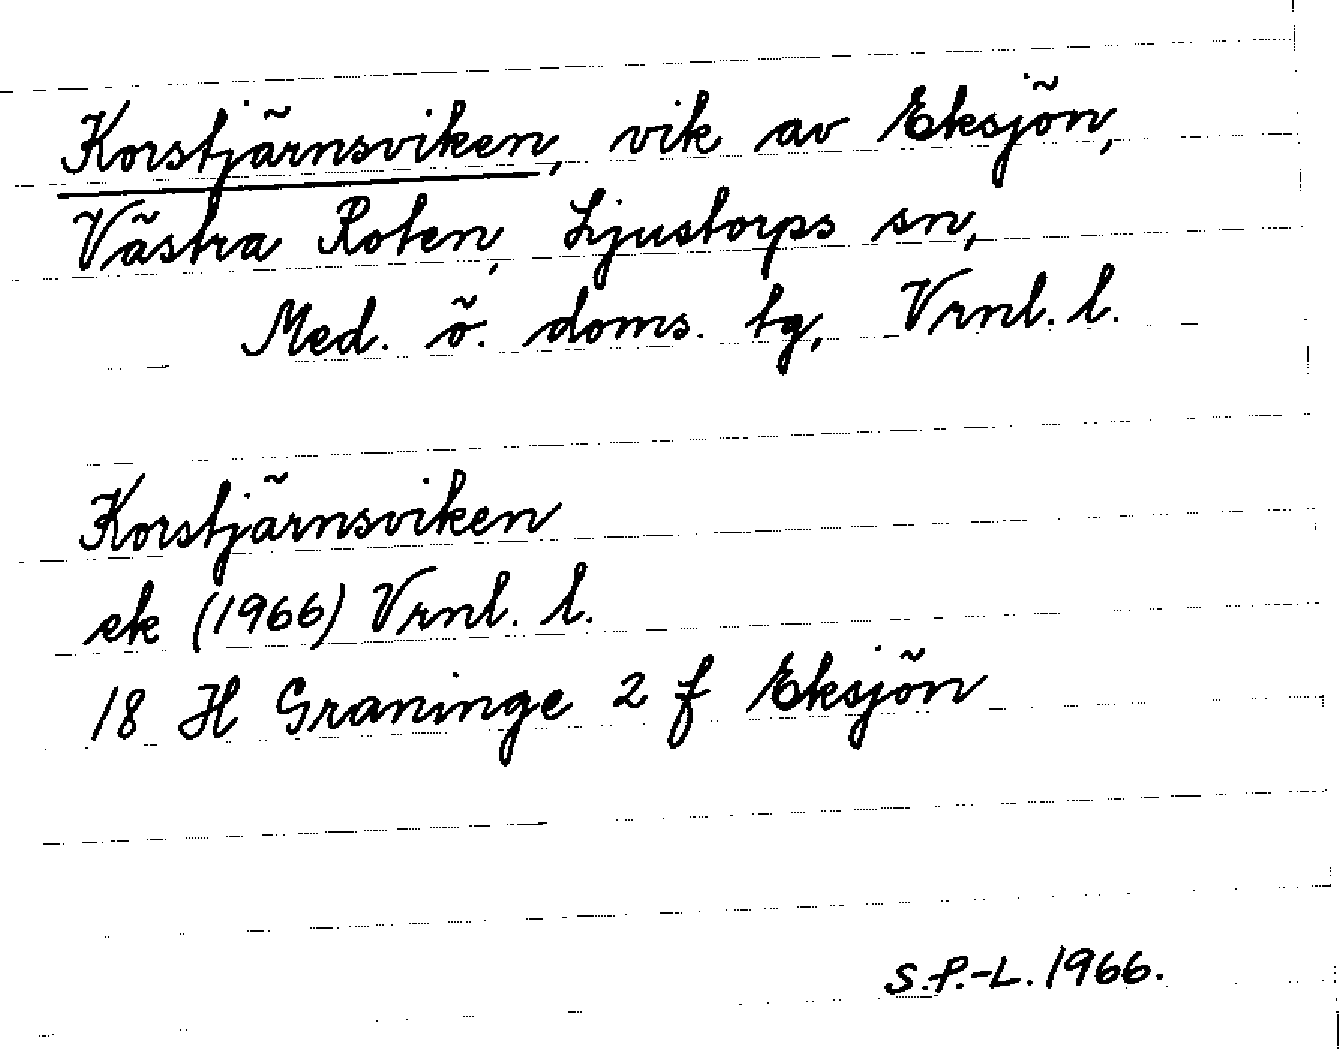 Korstjärnsviken, vik av Eksjön,
Västra Roten, Ljustorps sn,
Med. ö. doms. tg, Vrnl. l.
Korstjärnsviken
ek (1966) Vrnl. l.
18 H Graninge 2 f Eksjön
S.P.-L. 1966.